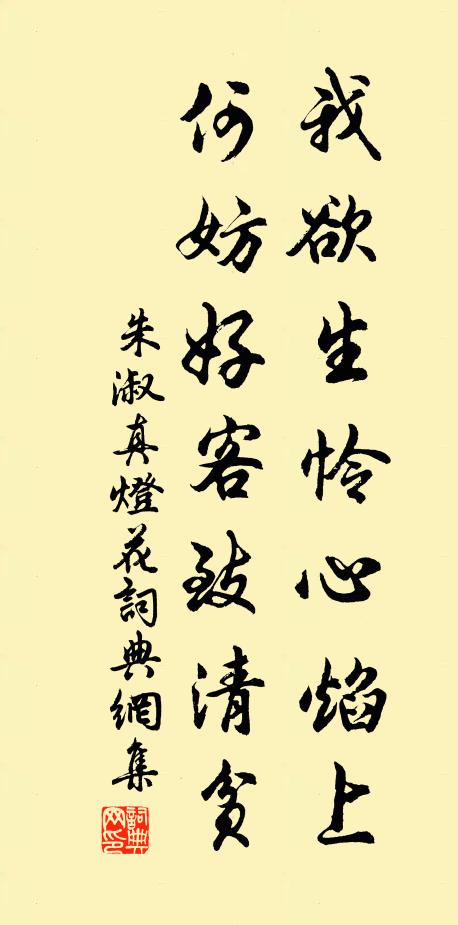 我欲生怜心焰上
何妨好客致清貧
朱淑真燈花詞典網集
詞典網印